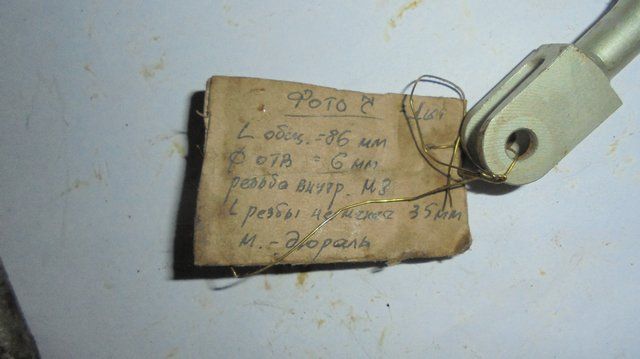 Фото 1 шт
L общ. = 86 мм
Ф отв = 6 мм
резьба внутр. М8
L резбы не менее 35 мм
М. - Дюраль